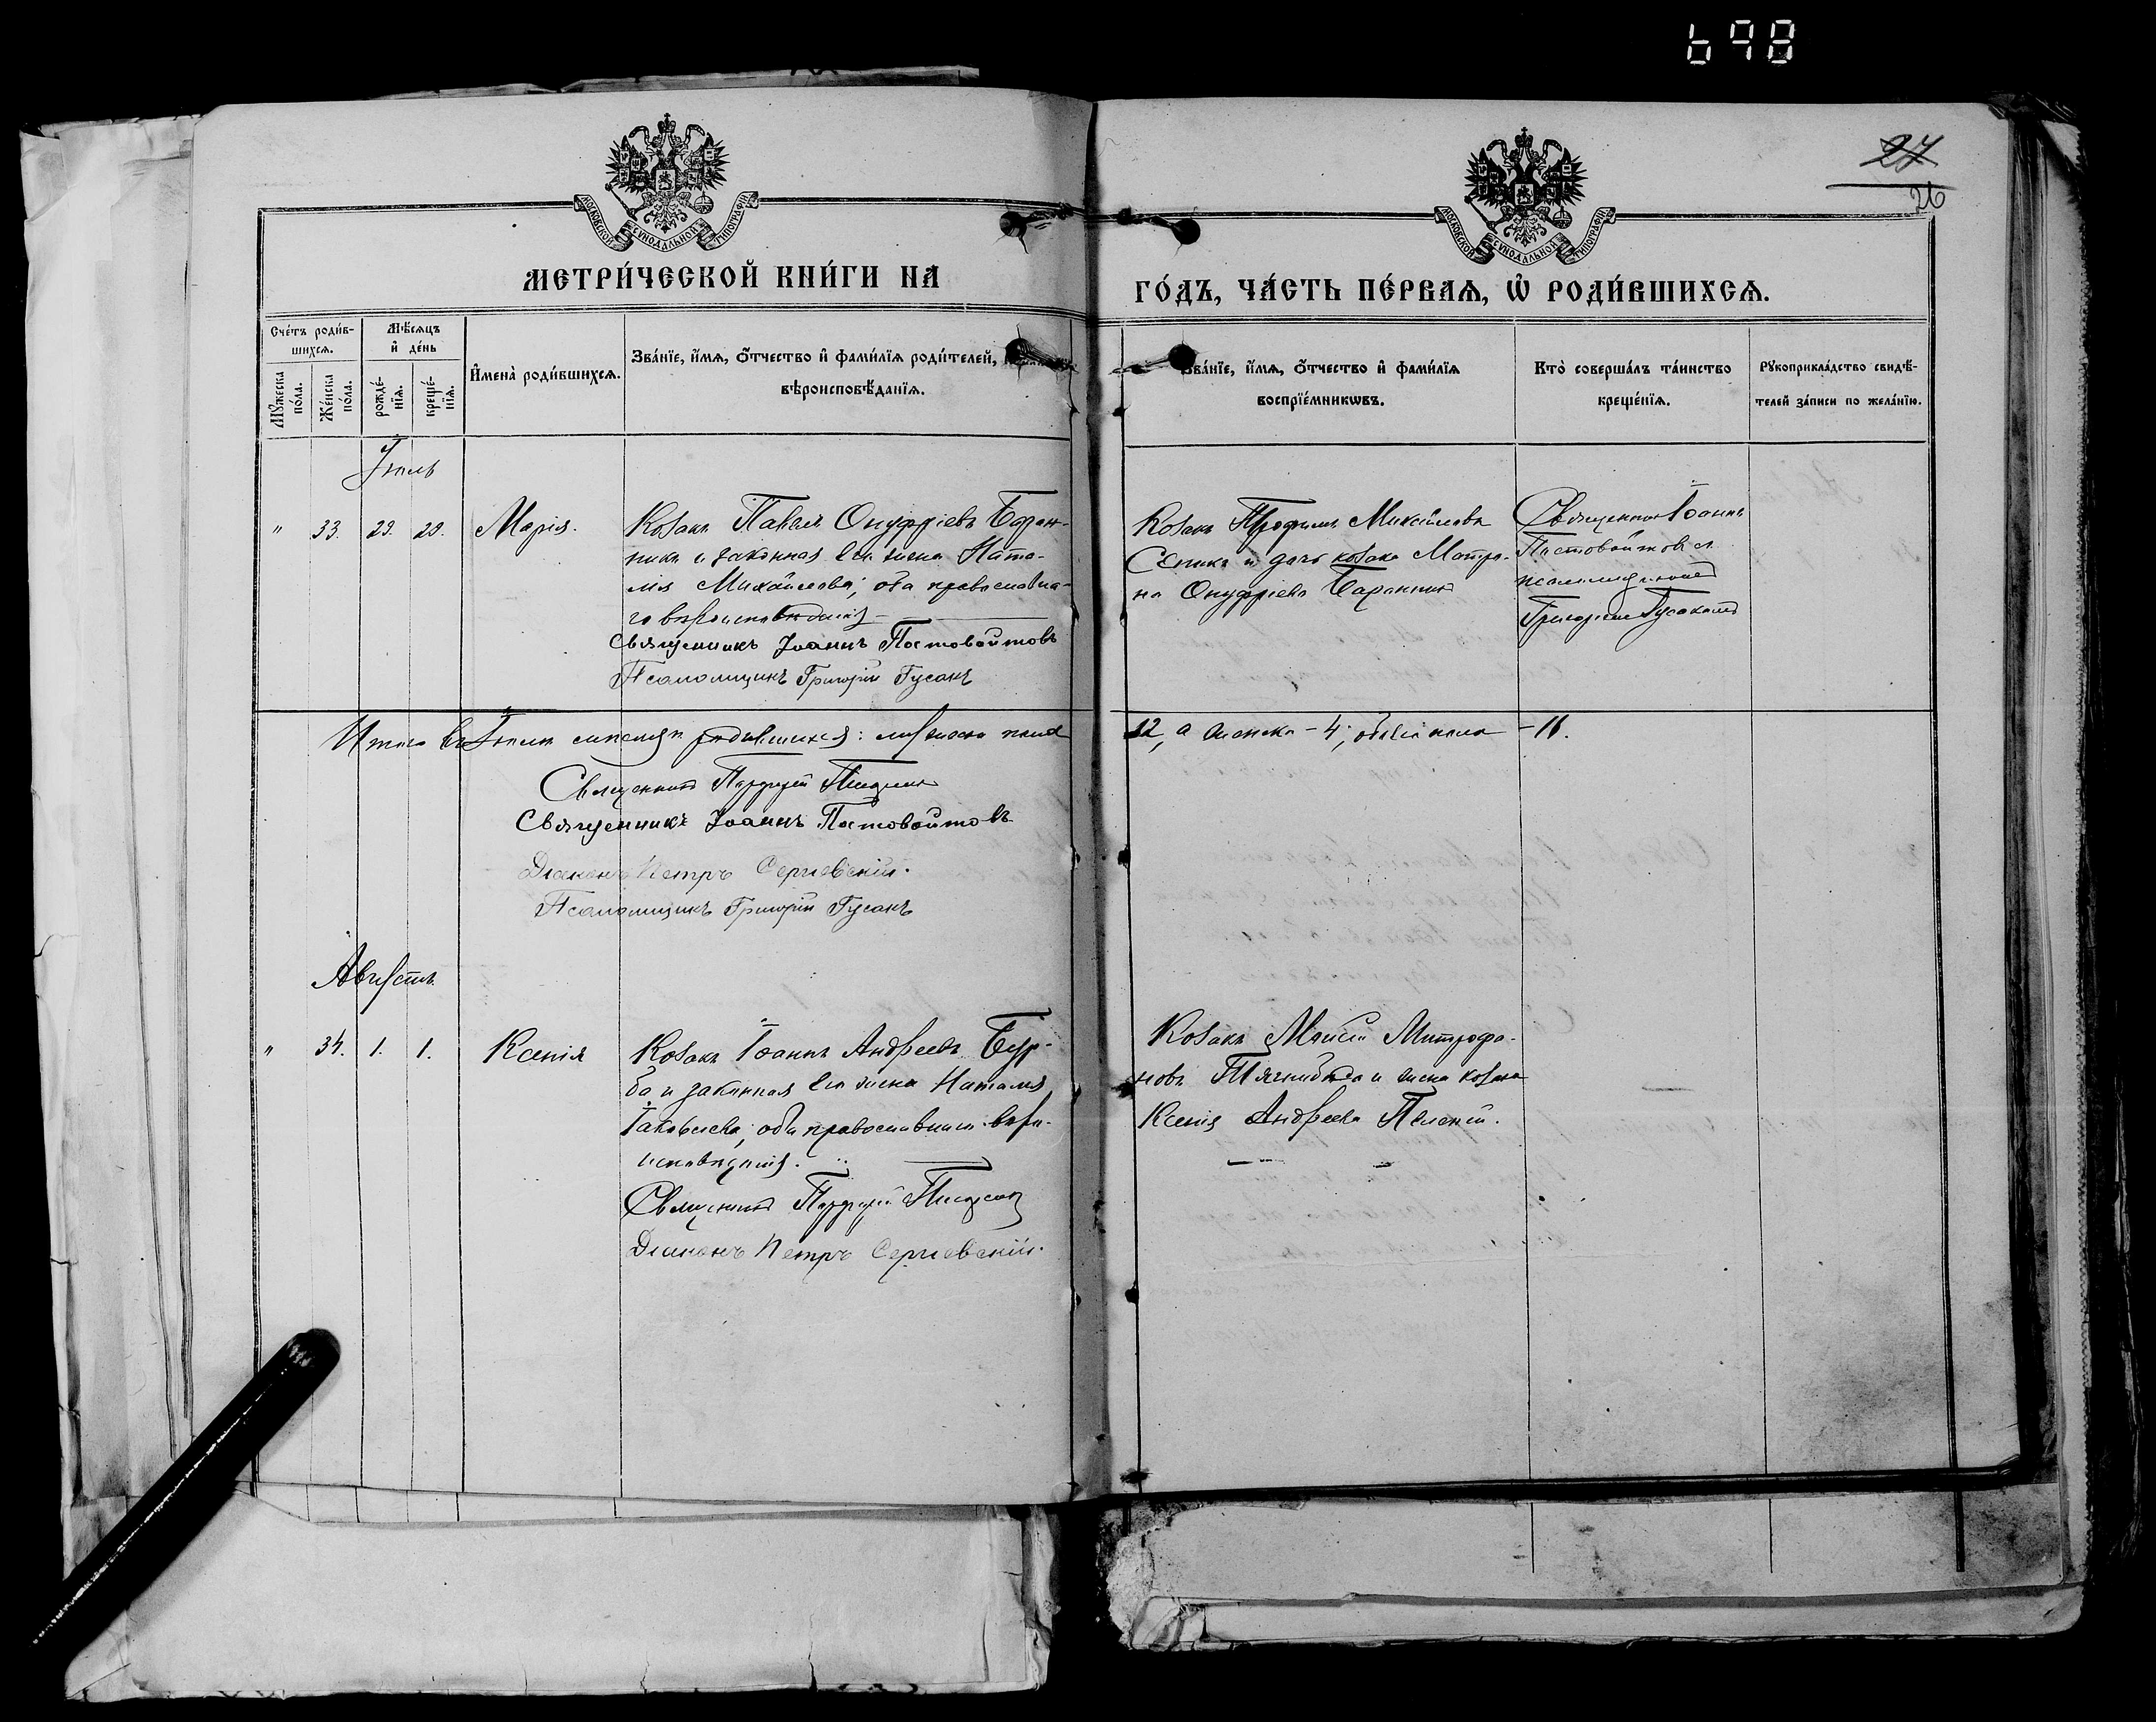 698
27
26
МОСКОВСКОЙ СУНОДАЛЬНОЙ ТИПОГРАФІИ
МОСКОВСКОЙ СУНОДАЛЬНОЙ ТИПОГРАФІИ
МЕТРИ́ЧЕСКОЙ КНИ́ГИ НА
ГО́ДЪ, ЧА́СТЬ ПЕ́РВАѦ, Ѡ҆ РОДИ́ВШИХСѦ.
Сче́тъ роди́в-
шихсѧ.
Мѣ́сѧцъ
и҆ де́нь
Мꙋ́жеска
по́ла.
Же́нска
по́ла.
рожде́-
нїѧ.
креще́-
нїѧ.
И҆мена̀ роди́вшихсѧ.
Зва́нїе, и҆́мѧ, ѻ҆́тчество и҆ фами́лїѧ роди́телей,
вѣроисповѣ́данїѧ.
Зва́нїе, и҆́мѧ, ѻ҆́тчество и҆ фами́лїѧ
воспрїе́мникωвъ.
Кто̀ соверша́лъ та́инство
креще́нїѧ.
Рꙋкоприкла́дство свидѣ́-
телей за́писи по жела́нїю.
Іюль
" 33. 29. 29. Марія.
Козакъ Павелъ Онуфріевъ Баран-
никъ и законная его жена Ната-
лія Михайлова; оба православна-
го вѣроисповѣданія
Священникъ Іоаннъ Постовойтовъ
Псаломщикъ Григорій Гусакъ
Козакъ Трофимъ Михайловъ
и дочь козака Матро-
на Онуфріева Баранникъ
Священникъ Іоаннъ
Постовойтовъ съ
псаломщикомъ
Григоріемъ Гусакомъ
Итого въ Іюлѣ мѣсяцѣ родившихся: мужеска пола
12, а женска - 4; обоего пола - 16.
Священникъ
Священникъ Іоаннъ Постовойтовъ
Діаконъ Петръ Сергіевскій.
Псаломщикъ Григорій Гусакъ
Августъ.
" 34. 1. 1. Ксенія
Козакъ Іоаннъ Андреевъ Бур-
ба и законная его жена Наталія
Іаковлева; оба православнаго вѣро-
исповѣданія.
Священникъ
Діаконъ Петръ Сергіевскій.
Козакъ Митрофа-
новъ Тягнибѣда и жена козака
Ксенія Андреева